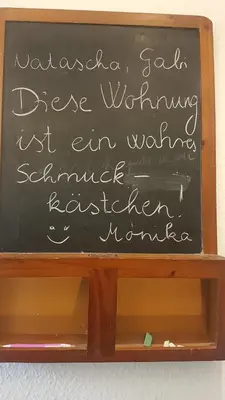 Natascha, Gabi
Diese Wohnung
ist ein wahres
Schmuck-
kästchen.
Monika